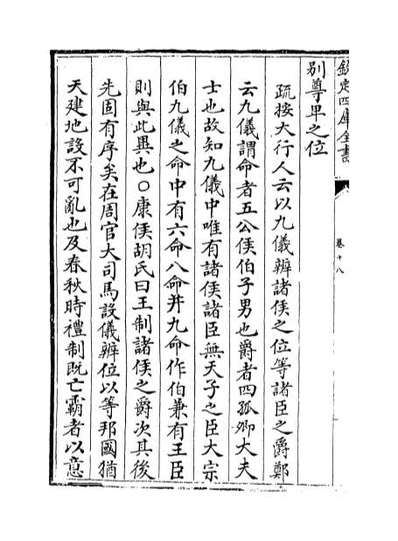 欽定四庫全書
卷十八
別尊卑之位
疏按大行人云以九儀辨諸侯之位等諸臣之爵鄭
云九儀謂命者五公侯伯子男也爵者四孤卿大夫
士也故知九儀中唯有諸侯諸臣無天子之臣大宗
伯九儀之命中有六命八命并九命作伯兼有王臣
則與此異也〇康侯胡氏曰王制諸侯之爵次其後
先固有序矣在周官大司馬設儀辨位以等邦國猶
天建地設不可亂也及春秋時禮制既亡霸者以意